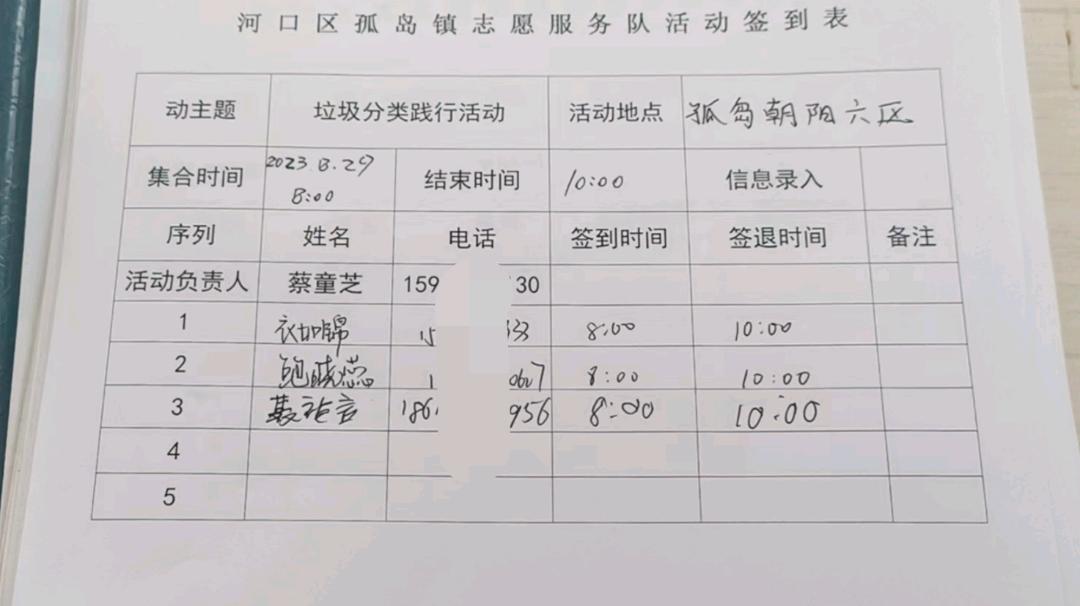 河口区孤岛镇志愿服务队活动签到表
动主题 垃圾分类践行活动 活动地点 孤岛朝阳六区
集合时间 2023.8.29 8:00 结束时间 10:00 信息录入
序列 姓名 电话 签到时间 签退时间 备注
活动负责人 蔡童芝 159 30
1 衣如锦 15 33 8:00 10:00
2 鲍晓蕊 1 0627 8:00 10:00
3 186 956 8:00 10:00
4
5